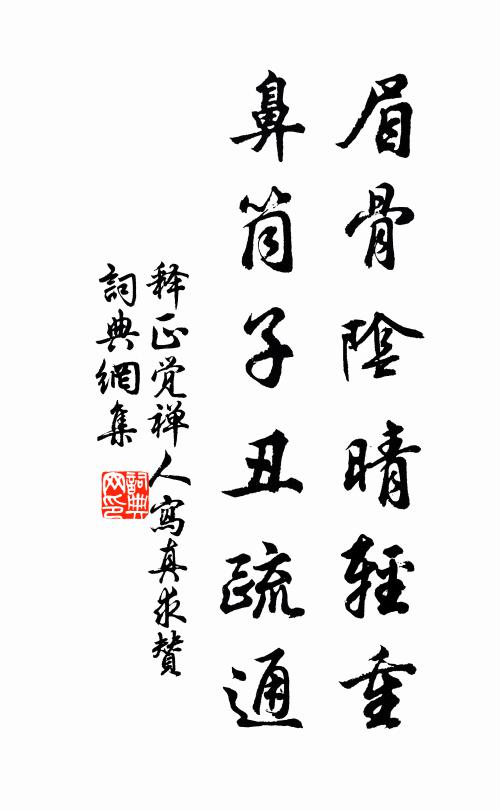 眉骨陰晴輕重
鼻筒子丑疏通
释正觉禅人寫真求贊
詞典網集
詞典网印